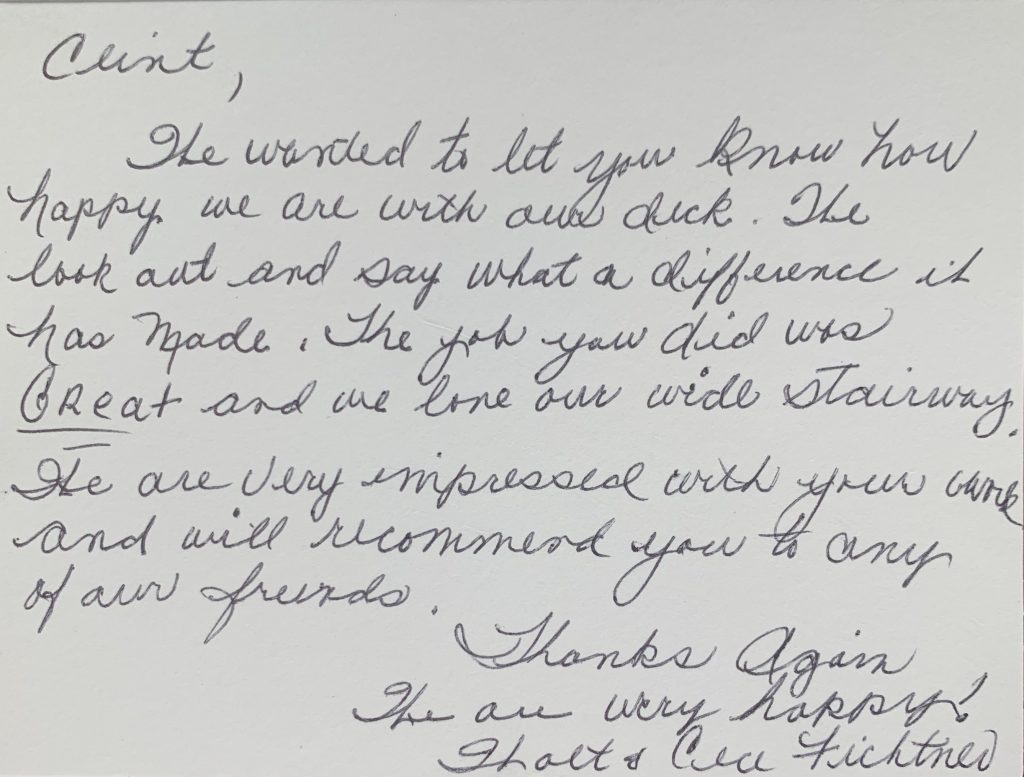 Clint,
We wanted to let you know how
happy we are with our deck. We
look out and say what a difference it
has made. The job you did was
GReat and we love our wide stairway.
We are very impressed with your work
and will recommend you to any
of our friends.
Thanks Again
We are very happy!
Walt & Cece Fichtner